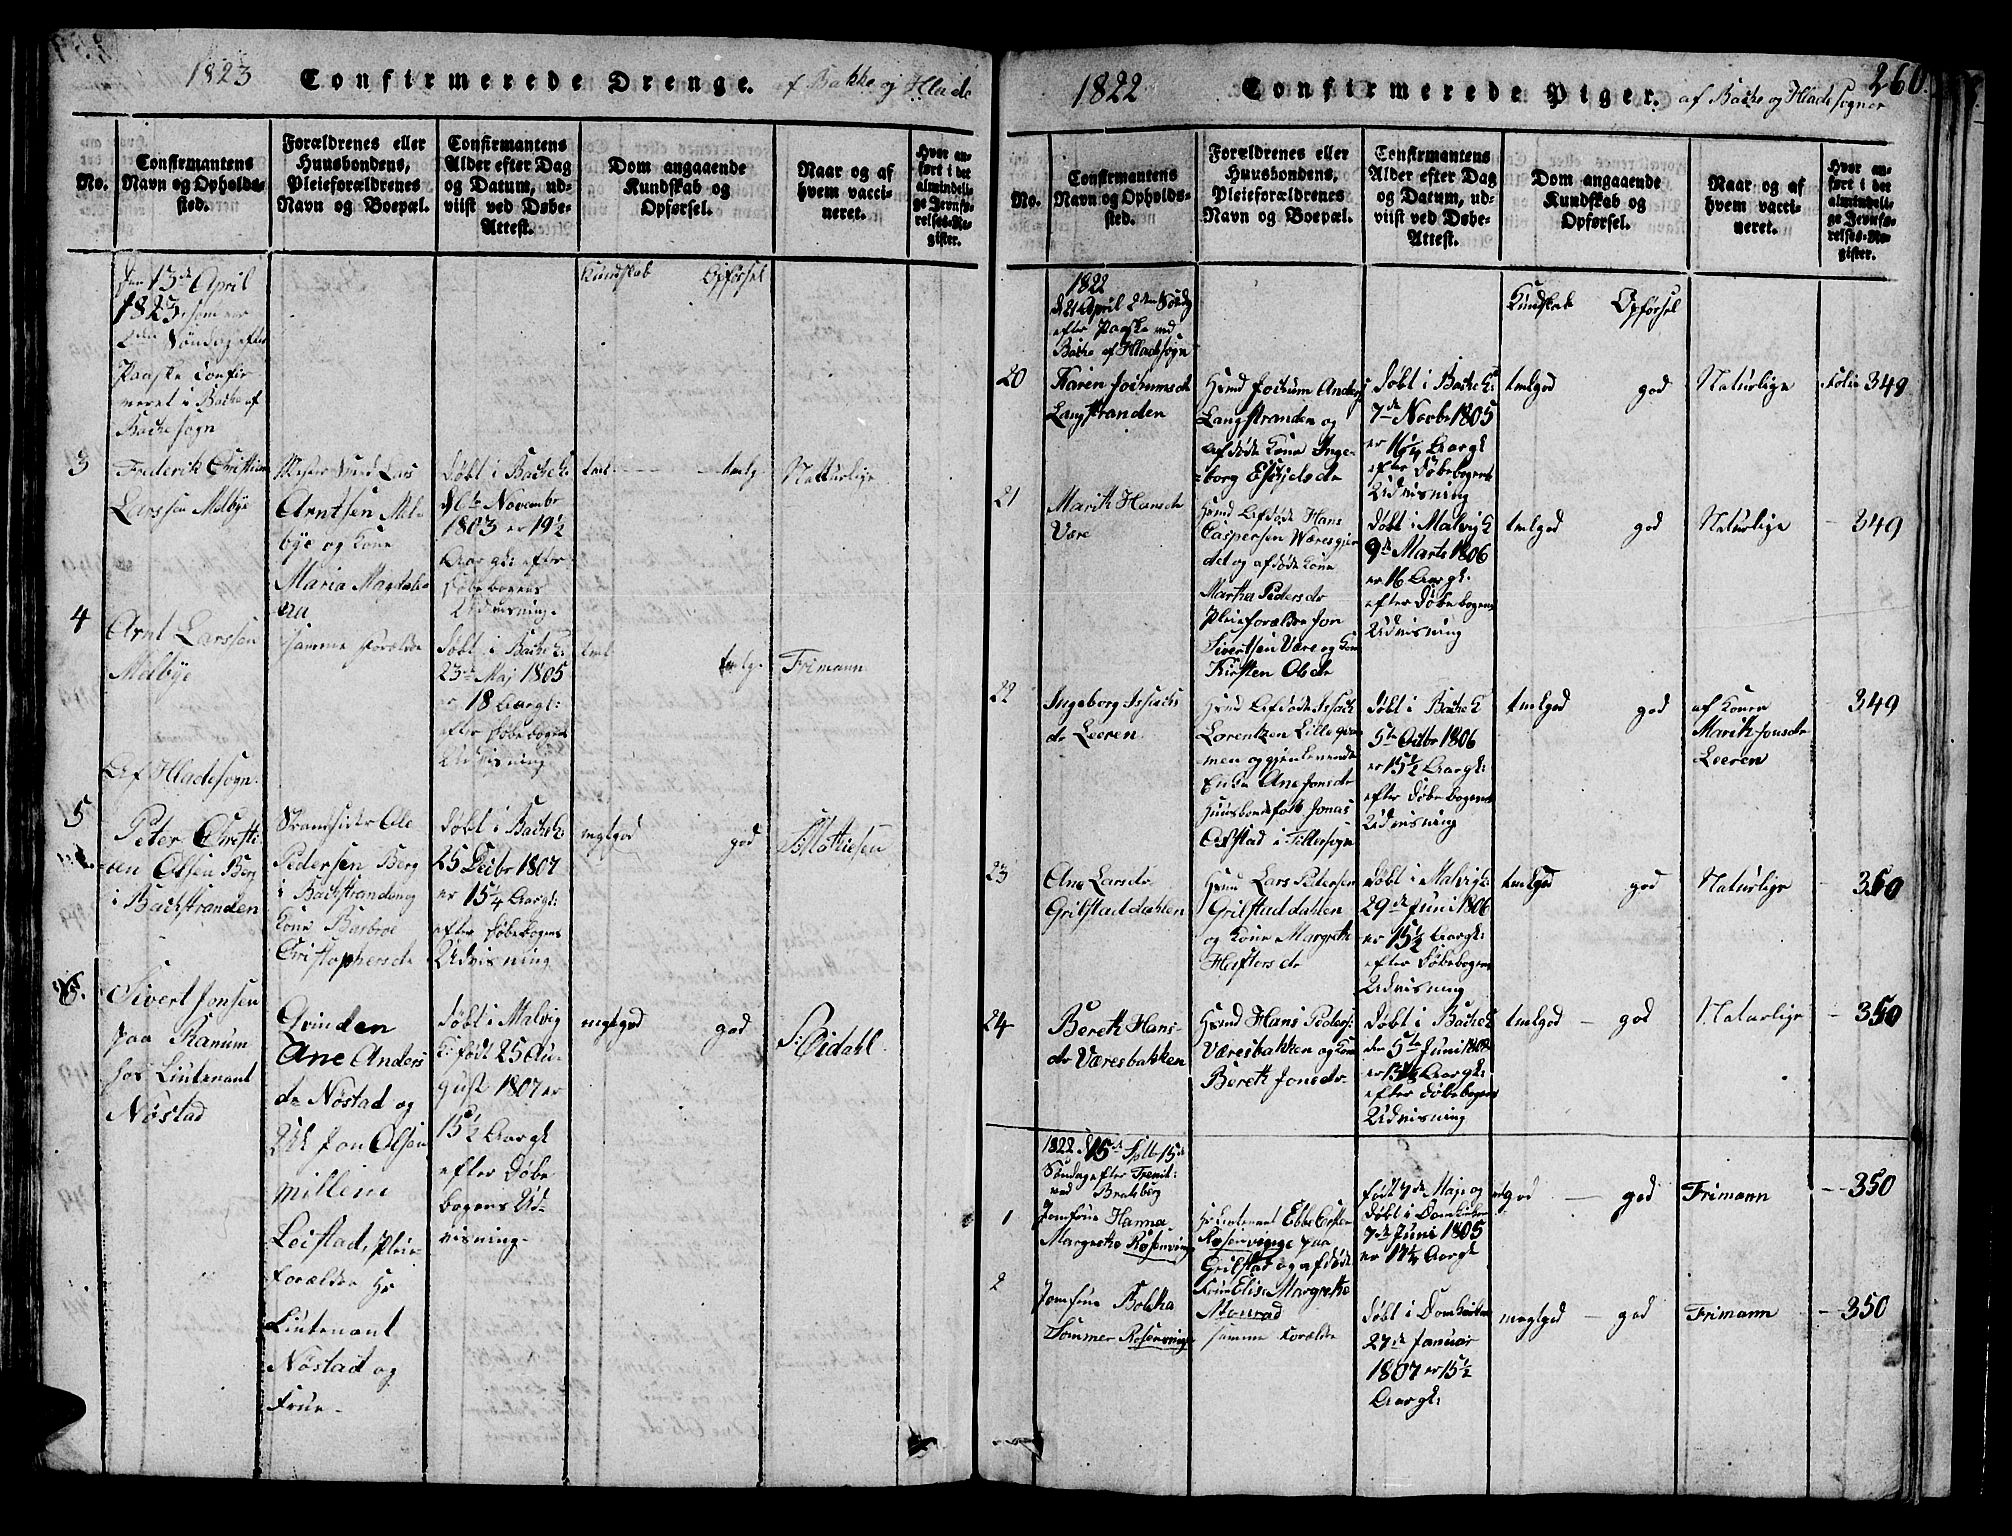 1823 Confirmerede Drenge. af Bakke og Hlade
No.
Confirmantens
Navn og Opholds-
sted.
Forældrenes eller
Huusbondens,
Pleieforældrenes
Navn og Boepæl.
Confirmantens
Alder efter Dag
og Datum, ud-
viist ved Døbe-
Attest.
Dom angaaende
Kundskab og
Opførsel.
Naar og af
hvem vacci-
neret.
Hvor an-
ført i det
almindeli-
ge Jevnfø-
relses-Re-
gister.
Den 13de April
1823, som er
2den Søndag efter
Paaske Confir
meret i Bache af
Bachesogn
Kundskab Opførsel
3
Frederik Christian
Larssen Melbye
Lars
Arntsen Mel-
bye og Kone
Maria Magdale-
na
døbt i Bache k:
d 6te Novembr
1803 er 19½
Aar gl: efter
Døbebogens
Udvisning.
tml. tmlg. Natturlige
4
Arnt Larssen
Melbye
samme Forældre
døbt i Bache k:
23de Maj 1805
er 18 Aar gl:
efter Døbebogens
Udvisning
tml tmlg. Frimann
Af Hladesogn.
5
Peter Christi
an Olsen Berg
i Bachstranden
Strandsidder Ole
Pedersen Berg
i Bachstranden og
Kone Barbroe
Cristophersdr
døbt i Bache k:
25 Decbr 1807
er 15¼ Aar gl:
efter Døbebogens
Udvisning
megtgod god Mattiesen
6.
Sivert Jonsen
paa Ranum
hos Liutenant
Nøstad
Qvinden
Ane Anders
dr Nøstad og
Jon Olsen
Leistad, Pleie
Forældre Hr
Liutenant
Nøstad og
Frue.
døbt i Malvig
K: født 25 Au-
gust 1807 er
15½ Aar gl
efter Døbe
bogens Ud-
visning.
megtgod god S: Eidahl
1822 Confirmerede Piger. af Bache og Hlade Sogner 260.
No.
Confirmantens
Navn og Opholds-
sted.
Forældrenes eller
Huusbondens,
Pleieforældrenes
Navn og Boepæl.
Confirmantens
Alder efter Dag
og Datum, ud-
viist ved Døbe-
Attest.
Dom angaaende
Kundskab og
Opførsel.
Naar og af
hvem vacci-
neret.
Hvor an-
ført i det
almindeli-
ge Jevnfø-
relses-Re-
gister.
1822
d 21 April 2den Søndg
efter Paaske ved
Bache af Hladesogn
Kundskab Opførsel
20
Karen Jochumsdr
Langstranden
Hsmd Jochum Anders:
Langstranden og
Afdøde Kone Inge-
borg Eskjelsdr
døbt i Bache k:
7de Novbr 1805
er 16¼ Aar gl:
efter Døbebogens
Udvisning
tmlgod god Naturlige Folio 349
21
Marit Hansdr
Være
Hsmd Afdøde Hans
Caspersen Væresgjer
det og afdøde Kone
Martha Pedersdr
Pleieforældre Jon
Sivertsen Være og Kone
Kirsten Olsdr
døbt i Malvig k
9de Marts 1806
er 16 Aar gl:
efter Døbebogens
Udvisning
tmlgod god Naturlige 349
22
Ingeborg Issachs
dr Leeren
Hsmd Afdøde Issach
Lorentzen Lille
men og gjenlevende
Enke Ane Jonsdr
Huusbondfolk Jonas
i Tillersogn
døbt i Bache k
5te Octbr 1806
er 15½ Aar gl:
efter Døbebogens
Udvisning
tmlgod god af Konen
Marit Jonsdr
Leeren
349
23
Ane Larsdr
Grilstaddahlen
Hsmd Lars Pedersen
Grilstaddahlen
og Kone Margrete
Haftorsdr
døbt i Malvig k:
29de Juni 1806
er 15½ Aar gl:
efter Døbebogens
Udvisning
tmlgod god Naturlige 350
24
Beret Hans-
dr Væresbakken
Hsmd Hans Peders:
Væresbakken og Kone
Beret Jonsdr
døbt i Bache k
den 5te Juni
er Aar gl:
efter Døbebogens
Udvisning
tmlgod god Naturlige 350
1822 d 15de Sptbr 15de
Søndag efter Trenit:
ved Bratsberg
1
Jomfrue Hanna
Margrete Rosenvinge
Hr Liutenant Ebbe Carsten
Rosenvinge paa
Grilstad og afdøde
Frue Elis: Margrete
Monrad
født 7de Maj og
døbt i Domkirken
7de Juni 1805
er 17¼ Aar gl
mgtgod god Frimann 350
2
Jomfrue Boletta
Sommer Rosenvinge
samme Forældre
døbt i Domkirken
27de Januar
1807 er 15½
Aar gl:
megtgod god Frimann 350